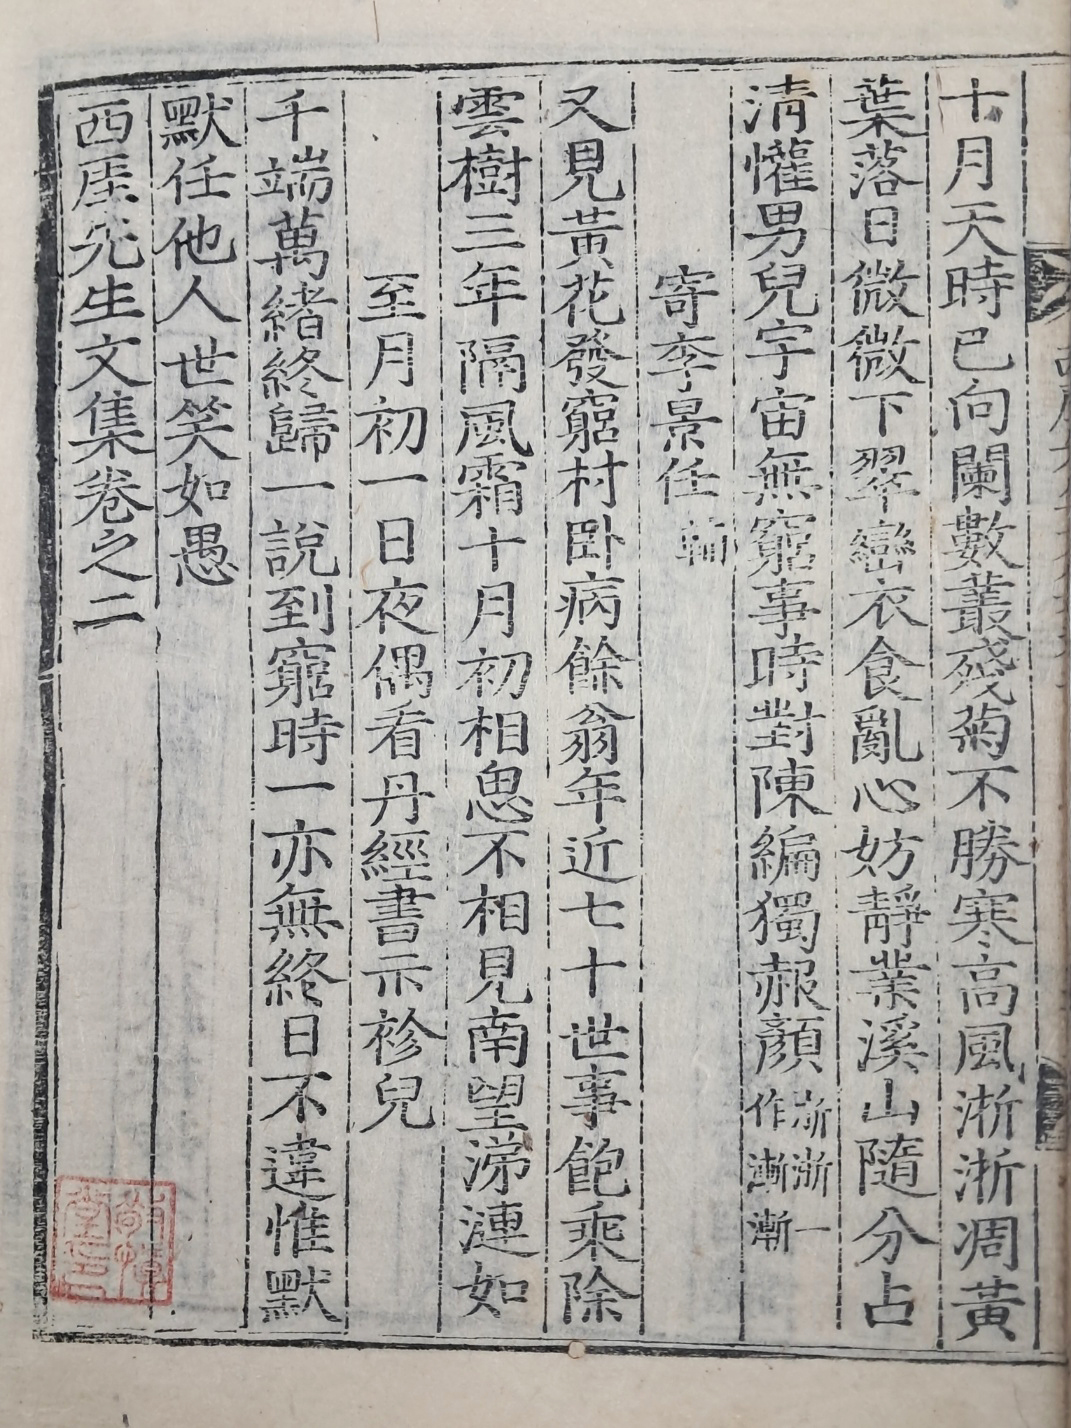 十月天時已向闌數叢殘菊不勝寒高風淅淅凋黃
葉落日微微下翠巒衣食亂心妨靜業溪山隨分占
清懽男兒宇宙無窮事時對陳編獨赧顏淅淅一作漸漸
寄李景任
又見黃花發窮村卧病餘翁年近七十世事飽乘除
雲樹三年隔風霜十月初相思不相見南望涕漣如
至月初一日夜偶看丹經書示袗兒
千端萬緖終歸一說到窮時一亦無終日不違惟默
默任他人世笑如愚
西厓先生文集卷之二